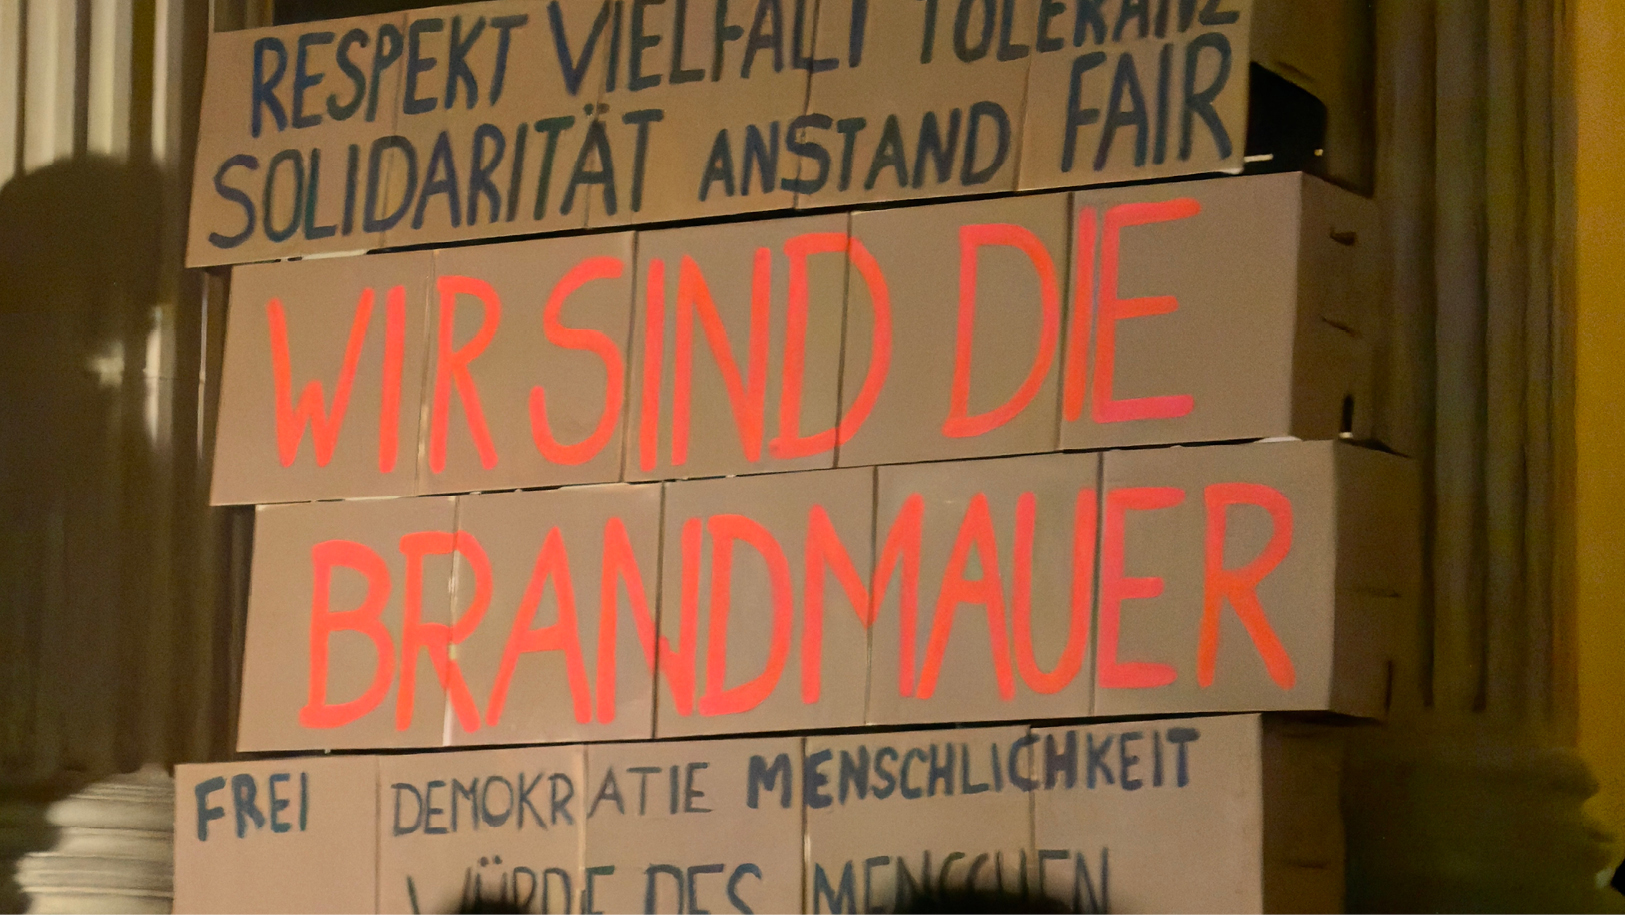 RESPEKT VIELFALT TOLERANZ
SOLIDARITÄT ANSTAND FAIR
WIR SIND DIE
BRANDMAUER
FREI DEMOKRATIE MENSCHLICHKEIT
WÜRDE DES MENSCHEN